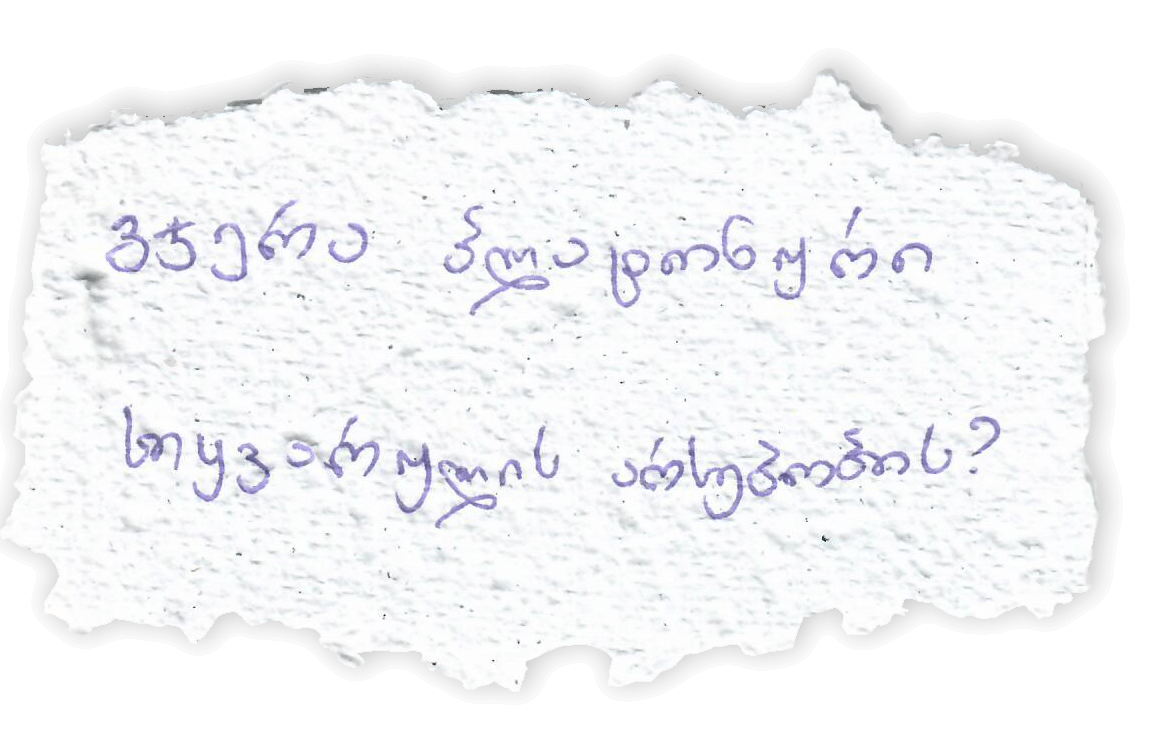 გჯერა პლატონური
სიყვარულის არსებობის?